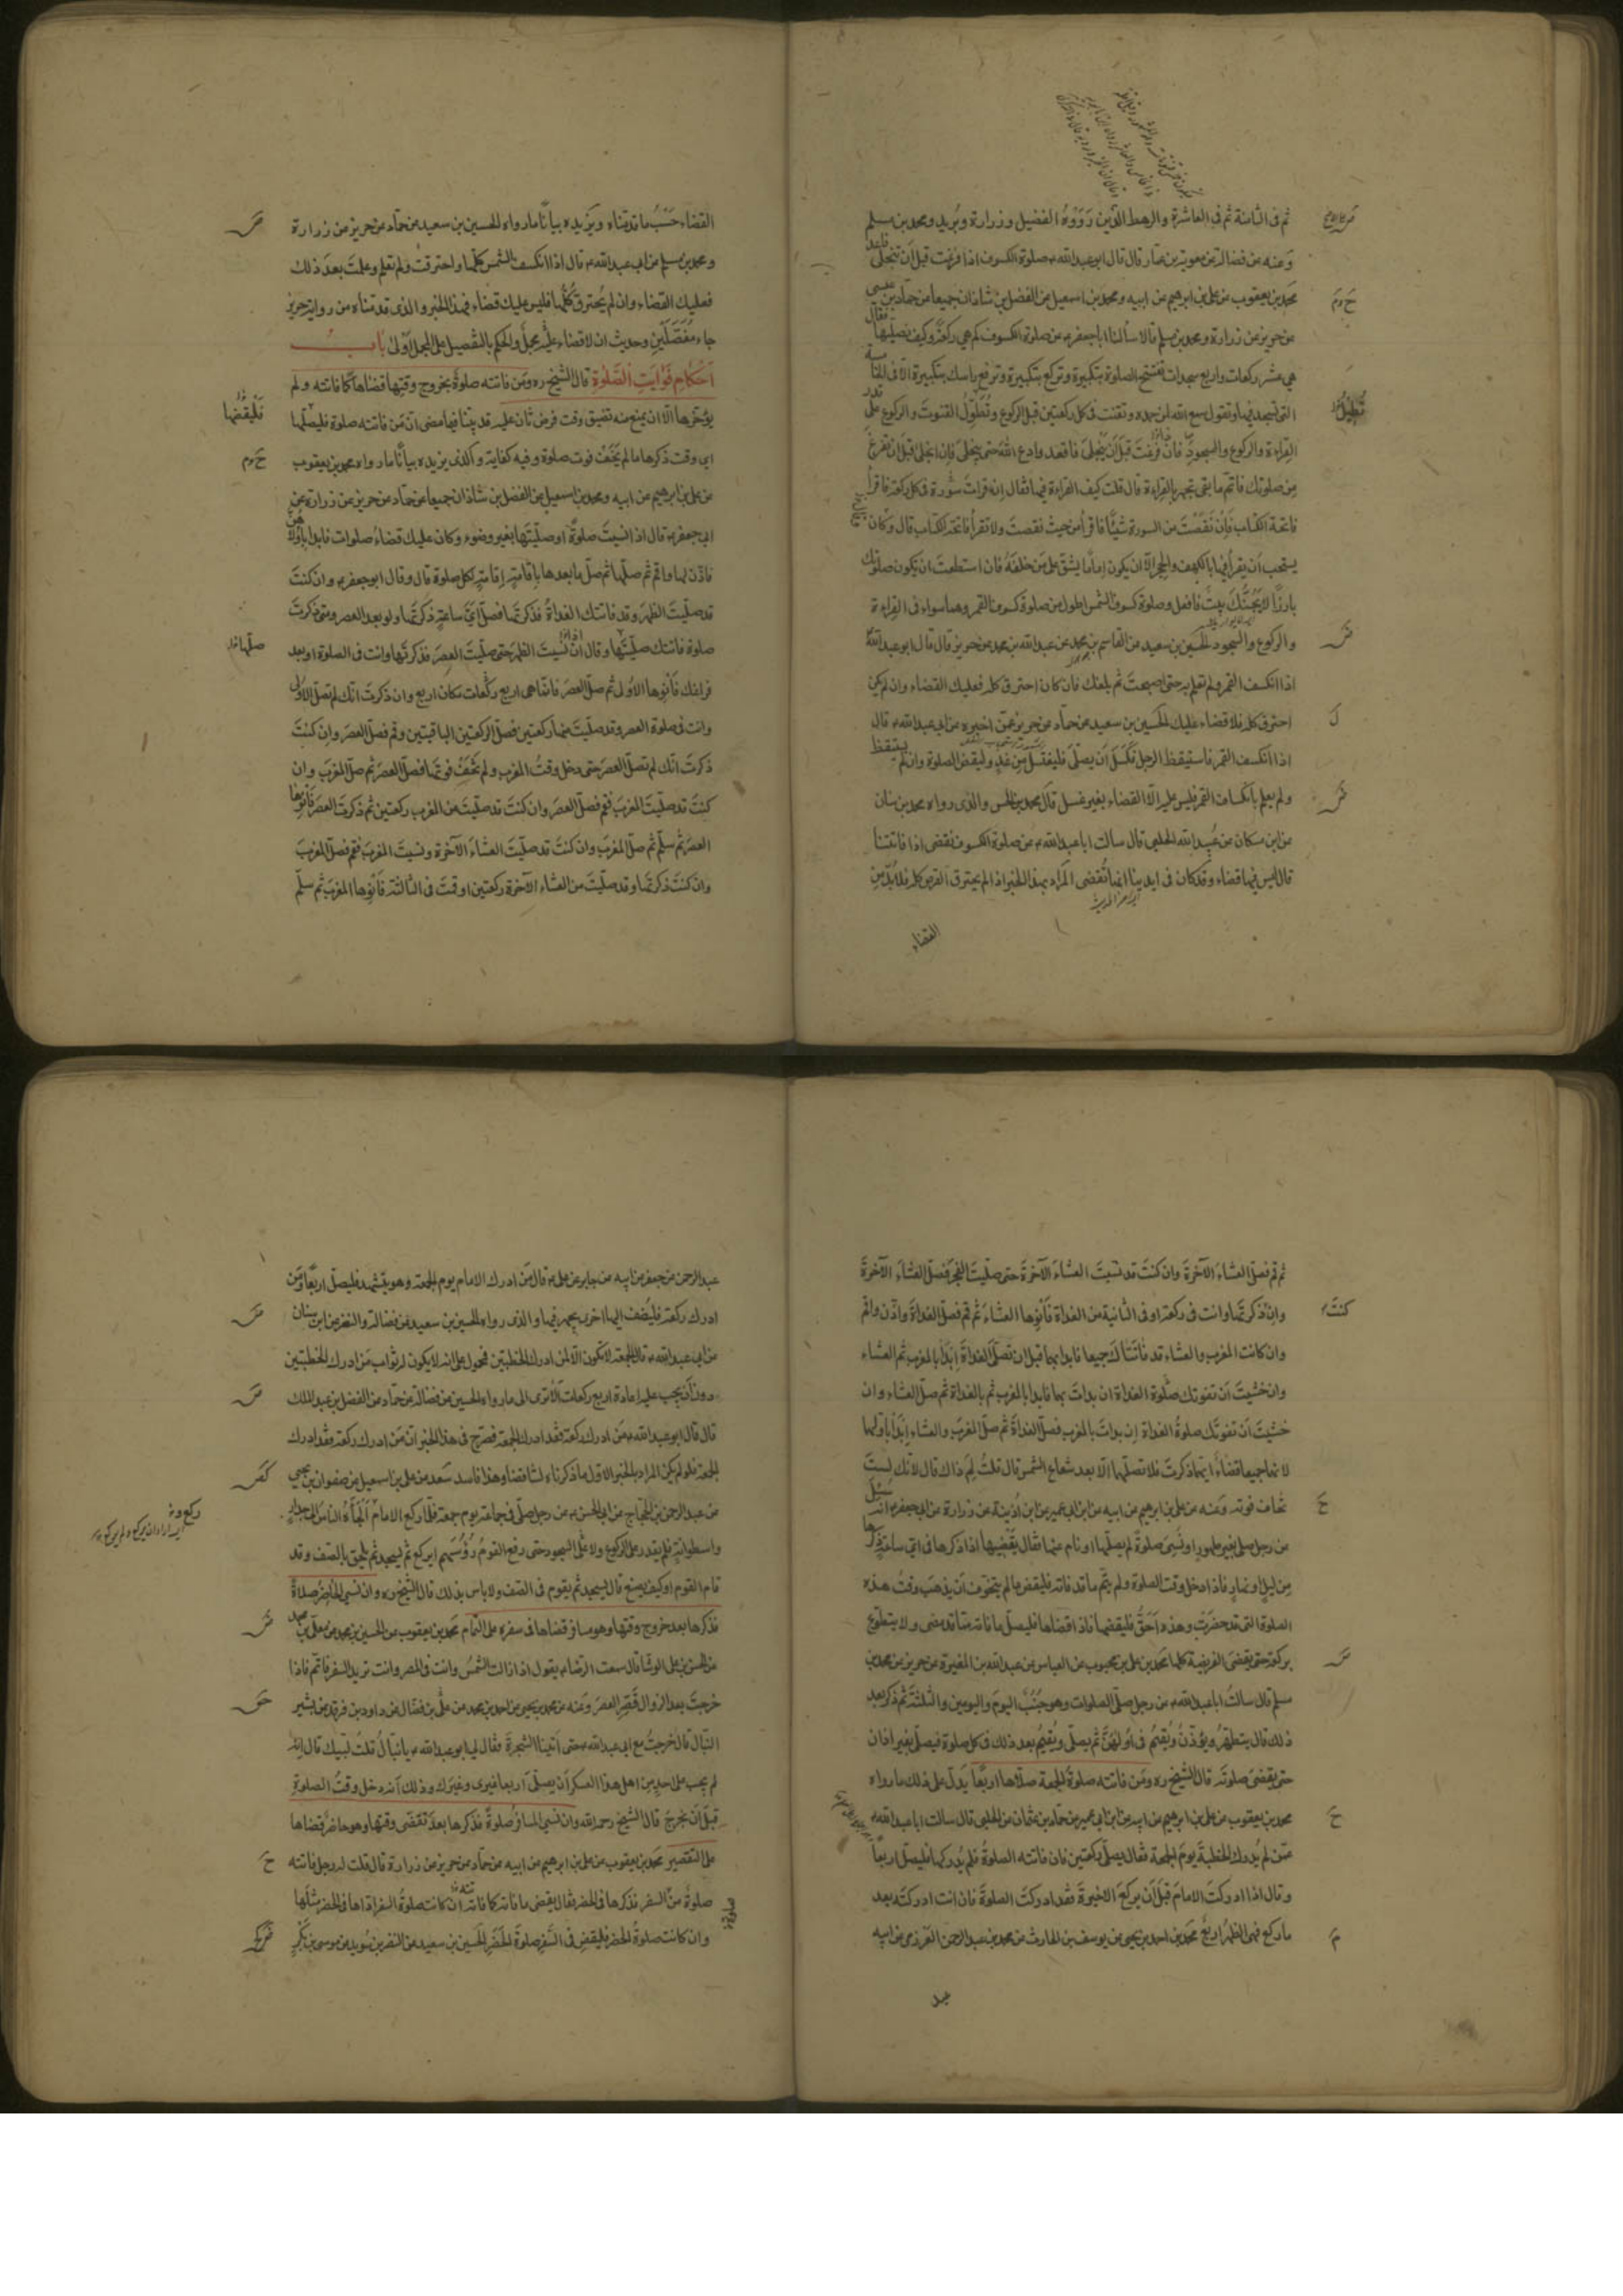 ثم فى الثامنة ثم فى العاشرة والرهط الذين رَوَوْهُ الفضيل وزرارة وبُريد ومحمد بن مسلم
وَعنه عن فضالة عن معوية بن عمار قال قال ابو عبد الله ع صلوة الكسوف اذا فرغت قبل ان تنجلى فاعد
محمد بن يعقوب عن على بن ابرهيم عن ابيه ومحمد بن اسمعيل عن الفضل بن شاذان جميعا عن حماد بن عيسى
عن حريز عن زرارة ومحمد بن مسلم قالا سألنا ابا جعفر ع عن صلوة الكسوف كم هى ركعة وكيف نصليها فقال
هى عشر ركعات واربع سجدات تفتتح الصلوة بتكبيرة وتركع بتكبيرة وترفع راسك بتكبيرة الا فى الخامسة
التى تسجد فيها وتقول سمع الله لمن حمده وتقنت فى كل ركعتين قبل الركوع وتُطَوِّلُ القنوت والركوع على قدر
القراءة والركوع والسجود فان فرغتَ قبل أن ينجلى فاقعد وادع الله حتى ينجلى فان انجلى قبل ان تفرغ
من صلوتك فاتم ما بقى تجهر بالقراءة قال قلت كيف القراءة فيها فقال ان قرات سورة فى كل ركعة فاقرأ
فاتحة الكتاب فإن نَقَصْتَ من السورة شيئًا فاقرأ من حيث نقصت ولا تقرأ فاتحة الكتاب قال وكان
يستحب أن يقرأ فيها بالكهف والحجر الا ان يكون إمامًا يشق على مَن خلفَهُ فان استطعت ان يكون صلوتك
بارزًا لا يَجُنُّكَ بيتٌ فافعل وصلوة كسوف الشمس اطول من صلوة كسوف القمر وهما سواء فى القراءة
والركوع والسجود الحسين بن سعيد عن القاسم بن محمد عن عبد الله بن محمد عن حريز قال قال ابو عبد الله ع
اذا انكسف القمر ولم تعلم به حتى اصبحت ثم بلغك فان كان احترق كله فعليك القضاء وان لم يكن
احترق كله فلا قضاء عليك الحسين بن سعيد عن حماد عن حريز عمّن اخبره عن ابى عبد الله ع قال
اذا انكسف القمر فاستيقظ الرجل فكسل أن يصلّى فليغتسل مِن غَدٍ وليقض الصلوة وان لم يستيقظ
ولم يعلم بانكساف القمر فليس عليه الا القضاء بغير غسل قال محمد بن الحسن والذى رواه محمد بن سنان
عن ابن مسكان عن عُبيد الله الحلبى قال سالت ابا عبد الله ع عن صلوة الكسوف تقضى اذا فاتتنا
قال ليس فيها قضاء وقد كان فى ايدينا انها تُقضى المراد بهذا الخبر اذا لم يحترق القرص كله فلا بدّ مِن
القضاء
القضاء حَسْبَ ما قدمناه ويَزيده بيانًا ما رواه الحسين بن سعيد عن حماد عن حريز عن زرارة
ومحمد بن مسلم عن ابى عبد الله ع قال اذا انكسف الشمس كلها واحترقت ولم تعلم وعلمت بعد ذلك
فعليك القضاء وان لم يحترق كُلُّها فليس عليك قضاء فهذا الخبر والذى قدمناه من رواية حريز
جاء مُفَصَّلَيْنِ وحديث ان لا قضاء عليه مجمل والحكم بالتفصيل على المجمل أوْلى باب
اَحْكامِ فَوايتِ الصَّلوةِ قال الشيخ ره ومَن فاتته صلوة بخروج وقتها قضاها كما فاتته ولم
يؤخّرها الّا ان يمنع منه تضيق وقت فرض ثان عليه قد بيّنا فيما مضى انّ مَن فاتته صلوة فليصلّها
اى وقت ذكرها ما لم يَخَفْ فوت صلوة وفيه كفاية والذى يزيده بيانًا ما رواه محمد بن يعقوب
عن على بن ابرهيم عن ابيه ومحمد بن اسمعيل عن الفضل بن شاذان جميعا عن حماد عن حريز عن زرارة عن
ابى جعفر ع قال اذا نسيتَ صلوةً او صلّيتَها بغير وضوء وكان عليك قضاءُ صلوات فابدا باُولاهُنّ
فاذّن لها واقم ثم صلّها ثم صلّ ما بعدها باقامةٍ إقامةٍ لكل صلوة قال وقال ابو جعفر ع وان كنتَ
قد صلّيتَ الظهرَ وقد فاتتك الغداةُ فذكرتَها فصلّ اىَّ ساعةٍ ذكرتَها ولو بعد العصر ومتى ذكرتَ
صلوة فاتتك صلّيتَها وقال ان نسيتَ الظهرَ حتى صلّيتَ العصرَ فذكرتَها وانت فى الصلوة او بعد
فراغك فانوِها الاُولى ثم صلّ العصرَ فانما هى اربع ركعات مكان اربع وان ذكرتَ انّك لم تصلّ الاُولى
وانت فى صلوة العصر وقد صليتَ منها ركعتين فصلّ الركعتين الباقيتين وقم فصلّ العصرَ وان كنتَ
ذكرتَ انّك لم تصلّ العصرَ حتى دخل وقتُ المغرب ولم تَخَفْ فوتَها فصلّ العصرَ ثم صلّ المغربَ وان
كنتَ قد صليتَ المغربَ فقم فصلّ العصرَ وان كنتَ قد صليتَ من المغرب ركعتين ثم ذكرتَ العصرَ فانوِها
العصرَ ثم سلّم ثم صلّ المغربَ وان كنتَ قد صليتَ العشاءَ الآخرة ونسيتَ المغربَ فقم فصلّ المغربَ
وان كنتَ ذكرتَها وقد صلّيتَ من العشاء الآخرة ركعتين او قمتَ فى الثالثة فانوِها المغربَ ثم سلّم
فَلْيَقْضِها
ثم قم فصلّ العشاءَ الآخرةَ وان كنتَ قد نسيتَ العشاءَ الآخرةَ حتى صلّيتَ الفجرَ فصلّ العشاءَ الآخرةَ
وان ذكرتَها وانت فى ركعة او فى الثانية من الغداة فانوِها العشاءَ ثم قم فصلّ الغداةَ واذّن واقم
وان كانت المغربُ والعشاء قد فاتتاك جميعا فابدا بهما قبل ان تصلّى الغداةَ اِبدَأ بالمغرب ثم العشاء
وان خشيتَ أن تفوتك صلوة الغداة ان بداتَ بهما فابدا بالمغرب ثم بالغداة ثم صلّ العشاء وان
خشيتَ أن تفوتَك صلوةُ الغداة إن بداتَ بالمغرب فصلّ الغداةَ ثم صلّ المغربَ والعشاء اِبدَأ باوّلهما
لانهما جميعا قضاءٌ ايّهما ذكرتَ فلا تصلّهما الّا بعد شعاع الشمس قال قلتُ لِمَ ذاك قال لانّك لستَ
تخاف فوته وَعنه عن على بن ابرهيم عن ابيه عن ابن ابى عمير عن ابن اُذينة عن زرارة عن ابى جعفر ع انه سُئل
عن رجل صلى بغير طهورٍ او نَسِىَ صلوةً لم يصلّها او نام عنها فقال يَقْضيها اذا ذكرها فى اىّ ساعةٍ ذكرها
مِن ليلٍ او نهارٍ فاذا دخل وقت الصلوة ولم يتمّ ما قد فاته فليقض ما لم يتخوّف أن يذهبَ وقتُ هذه
الصلوة التى قد حضرَتْ وهذه أحَقُّ فليقضها فاذا قضاها فليصلّ ما فاته ممّا قد مضى ولا يتطوّع
بركعة حتى يقضى الفريضة كلها محمد بن على بن محبوب عن العباس عن عبد الله بن المغيرة عن حريز عن محمد بن
مسلم قال سالتُ ابا عبد الله ع عن رجل صلّى الصلوات وهو جُنُبٌ اليومَ واليومين والثلثةَ ثم ذكر بعد
ذلك قال يتطهّرُ ويؤذّنُ ويُقيمُ فى اُولهُنَّ ثم يصلّى ويُقيمُ بعد ذلك فى كل صلوة فيصلّى بغير اذان
حتى يقضى صلوتَه قال الشيخ ره ومَن فاتته صلوةُ الجمعة صلّاها اربعًا يَدلّ على ذلك ما رواه
محمد بن يعقوب عن على بن ابرهيم عن ابيه عن ابن ابى عمير عن حمّاد بن عثمان عن الحلبى قال سالت ابا عبد الله ع
عمّن لم يُدرك الخطبةَ يومَ الجمعة فقال يصلّى ركعتين فان فاتته الصلوةُ فلم يُدركها فليصلّ اربعاً
وقال اذا ادركتَ الامامَ قبل أن يركعَ الاخيرةَ فقد ادركتَ الصلوةَ فان انت ادركتَه بعد
ما ركع فهى الظهرُ اربع محمد بن احمد بن يحيى عن يوسف بن الحارث عن محمد بن عبد الرحمن العرزمى عن ابيه
عبد
عبد الرحمن عن جعفر عن ابيه عن جابر عن على ع قال مَن ادرك الامام يوم الجمعة وهو يتشهد فليصلّ اربعًا ومَن
ادرك ركعة فليُضف اليها اخرى يجهر فيها والذى رواه الحسين بن سعيد عن فضالة والنضر عن ابن سنان
عن ابى عبد الله ع قال الجمعة لا تكون الّا لمن ادرك الخطبتين فمحمول على انه لا يكون له ثواب مَن ادرك الخطبتين
دون أن يجب عليه اعادة اربع ركعات ألا ترى الى ما رواه الحسين عن فضالة عن حماد عن الفضل بن عبد الملك
قال قال ابو عبد الله ع مَن ادرك ركعة فقد ادرك الجمعة فصرّح فى هذا الخبر انّ مَن ادرك ركعة فقد ادرك
الجمعة فلو لم يكن المراد بالخبر الاوّل ما ذكرناه لتناقضا وهذا فاسد سَعد عن على بن اسمعيل عن صفوان بن يحيى
عن عبد الرحمن بن الحجاج عن ابى الحسن ع عن رجل صلّى فى جماعة يوم جمعة فلمّا ركع الامامُ اَلْجأهُ الناسُ الى جدارٍ
واسطوانةٍ فلم يقدر على الركوع ولا على السجود حتى رفع القومُ رُؤُسَهم ايركع ثم يسجد ثم يلحق بالصف وقد
قام القوم او كيف يصنع قال يسجد ثم يقوم فى الصف ولا باس بذلك قال الشيخ ره وان نسى الحاضرُ صلاةً
فذكرها بعد خروج وقتها وهو مسافر قضاها فى سفره على التمام محمد بن يعقوب عن الحسين بن محمد عن معلّى بن محمد
عن الحسن بن على الوشّا قال سمعت الرّضا ع يقول اذا زالت الشمسُ وانت فى المصر وانت تريد السفر فاتمّ فاذا
خرجتَ بعد الزوال قَصّرِ العصرَ وعنه عن محمد بن يحيى عن احمد بن محمد عن على بن فضّال عن داود بن فرقد عن بشير
النبّال قال خرجتُ مع ابى عبد الله ع حتى أتينا الشجرةَ فقال لى ابو عبد الله ع يا نبّالُ قلتُ لبّيك قال إنّه
لم يجب على احدٍ من اهل هذا العسكر أن يصلّى اربعا غيرى وغيرك وذلك أنه دخل وقتُ الصلوةِ
قبل أن نخرجَ قال الشيخ رحمه الله وان نسى المسافرُ صلوةً فذكرها بعد تقضّى وقتها وهو حاضرٌ قضاها
على التقصير محمد بن يعقوب عن على بن ابرهيم عن ابيه عن حماد عن حريز عن زرارة قال قلت له رجل فاتته
صلوةٌ من السفر فذكرها فى الحضر فقال يقضى ما فاته كما فاته ان كانت صلوةُ السفر اداها فى الحضر مثلَها
وان كانت صلوةُ الحضر فليقض فى السَّفر صلوةَ الحَضَر الحسين بن سعيد عن النضر بن سُويد عن موسى بن بَكْرٍ